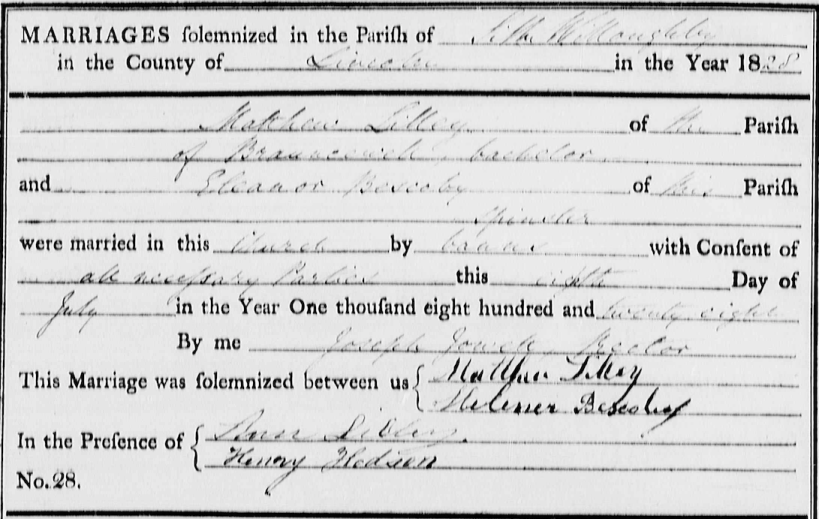 MARRIAGES ſolemnized in the Pariſh of Silk Willoughby
in the County of Lincoln in the Year 1828
Matthew Lilley of the Pariſh
of Brauncewell, bachelor
and Eleanor Bescoby of this Pariſh
spinster
were married in this Church by banns with Conſent of
all necessary Parties this eighth Day of
July in the Year One thouſand eight hundred and twenty eight
By me Joseph Jowett, Rector
This Marriage was ſolemnized between us { Matthew Lilley
Bescoby
In the Preſence of { Ann
Henry Hodson
No. 28.